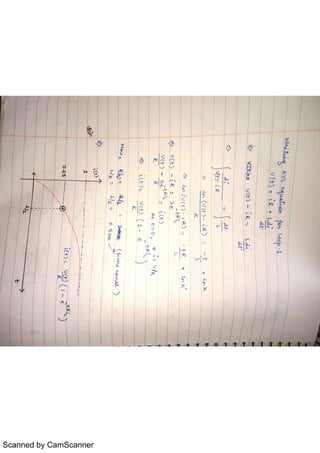 Writing KVL equation for loop-1
V(t) = iR + L di/dt
⇒ V(t) - iR = L di/dt
⇒ ∫ di/(V(t) - iR) = ∫ dt/L
⇒ ln(V(t) - iR)/R = -t/L + ln k
⇒ ln(V(t) - iR) = -tR/L + ln k'
⇒ V(t) - iR = 
V(t)/R - = i(t)
at t=0, i = V/R
⇒ i(t) = V(t)/R (1 - e^{-tR/L})
Now, = (time constant)
⇒ L/R = 1/2 = 0.5 sec
i(t)
1
0.63
i(t) = V(t)/R (1 - e^{-tR/L})
t
Scanned by CamScanner